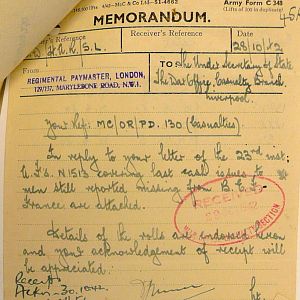 51-4662
Army Form C 348
MEMORANDUM.
Sender's Reference
Receiver's Reference
28/10/42
REGIMENTAL PAYMASTER, LONDON,
129/137, MARYLEBONE ROAD, N.W.1.
The Under Secretary of State
The War Office, Casualty Branch
Liverpool.
Your Ref: MC/OR/PD. 130 (Casualties).
In reply to your letter of the 23rd inst
N1513 covering last cash issues to
men still reported missing from B.E.F.
France are attached.
RECEIVED
Details of the rolls are endorsed hereon
and your acknowledgment of receipt will
be appreciated.
Receipt
Ackn. 30.10.42.